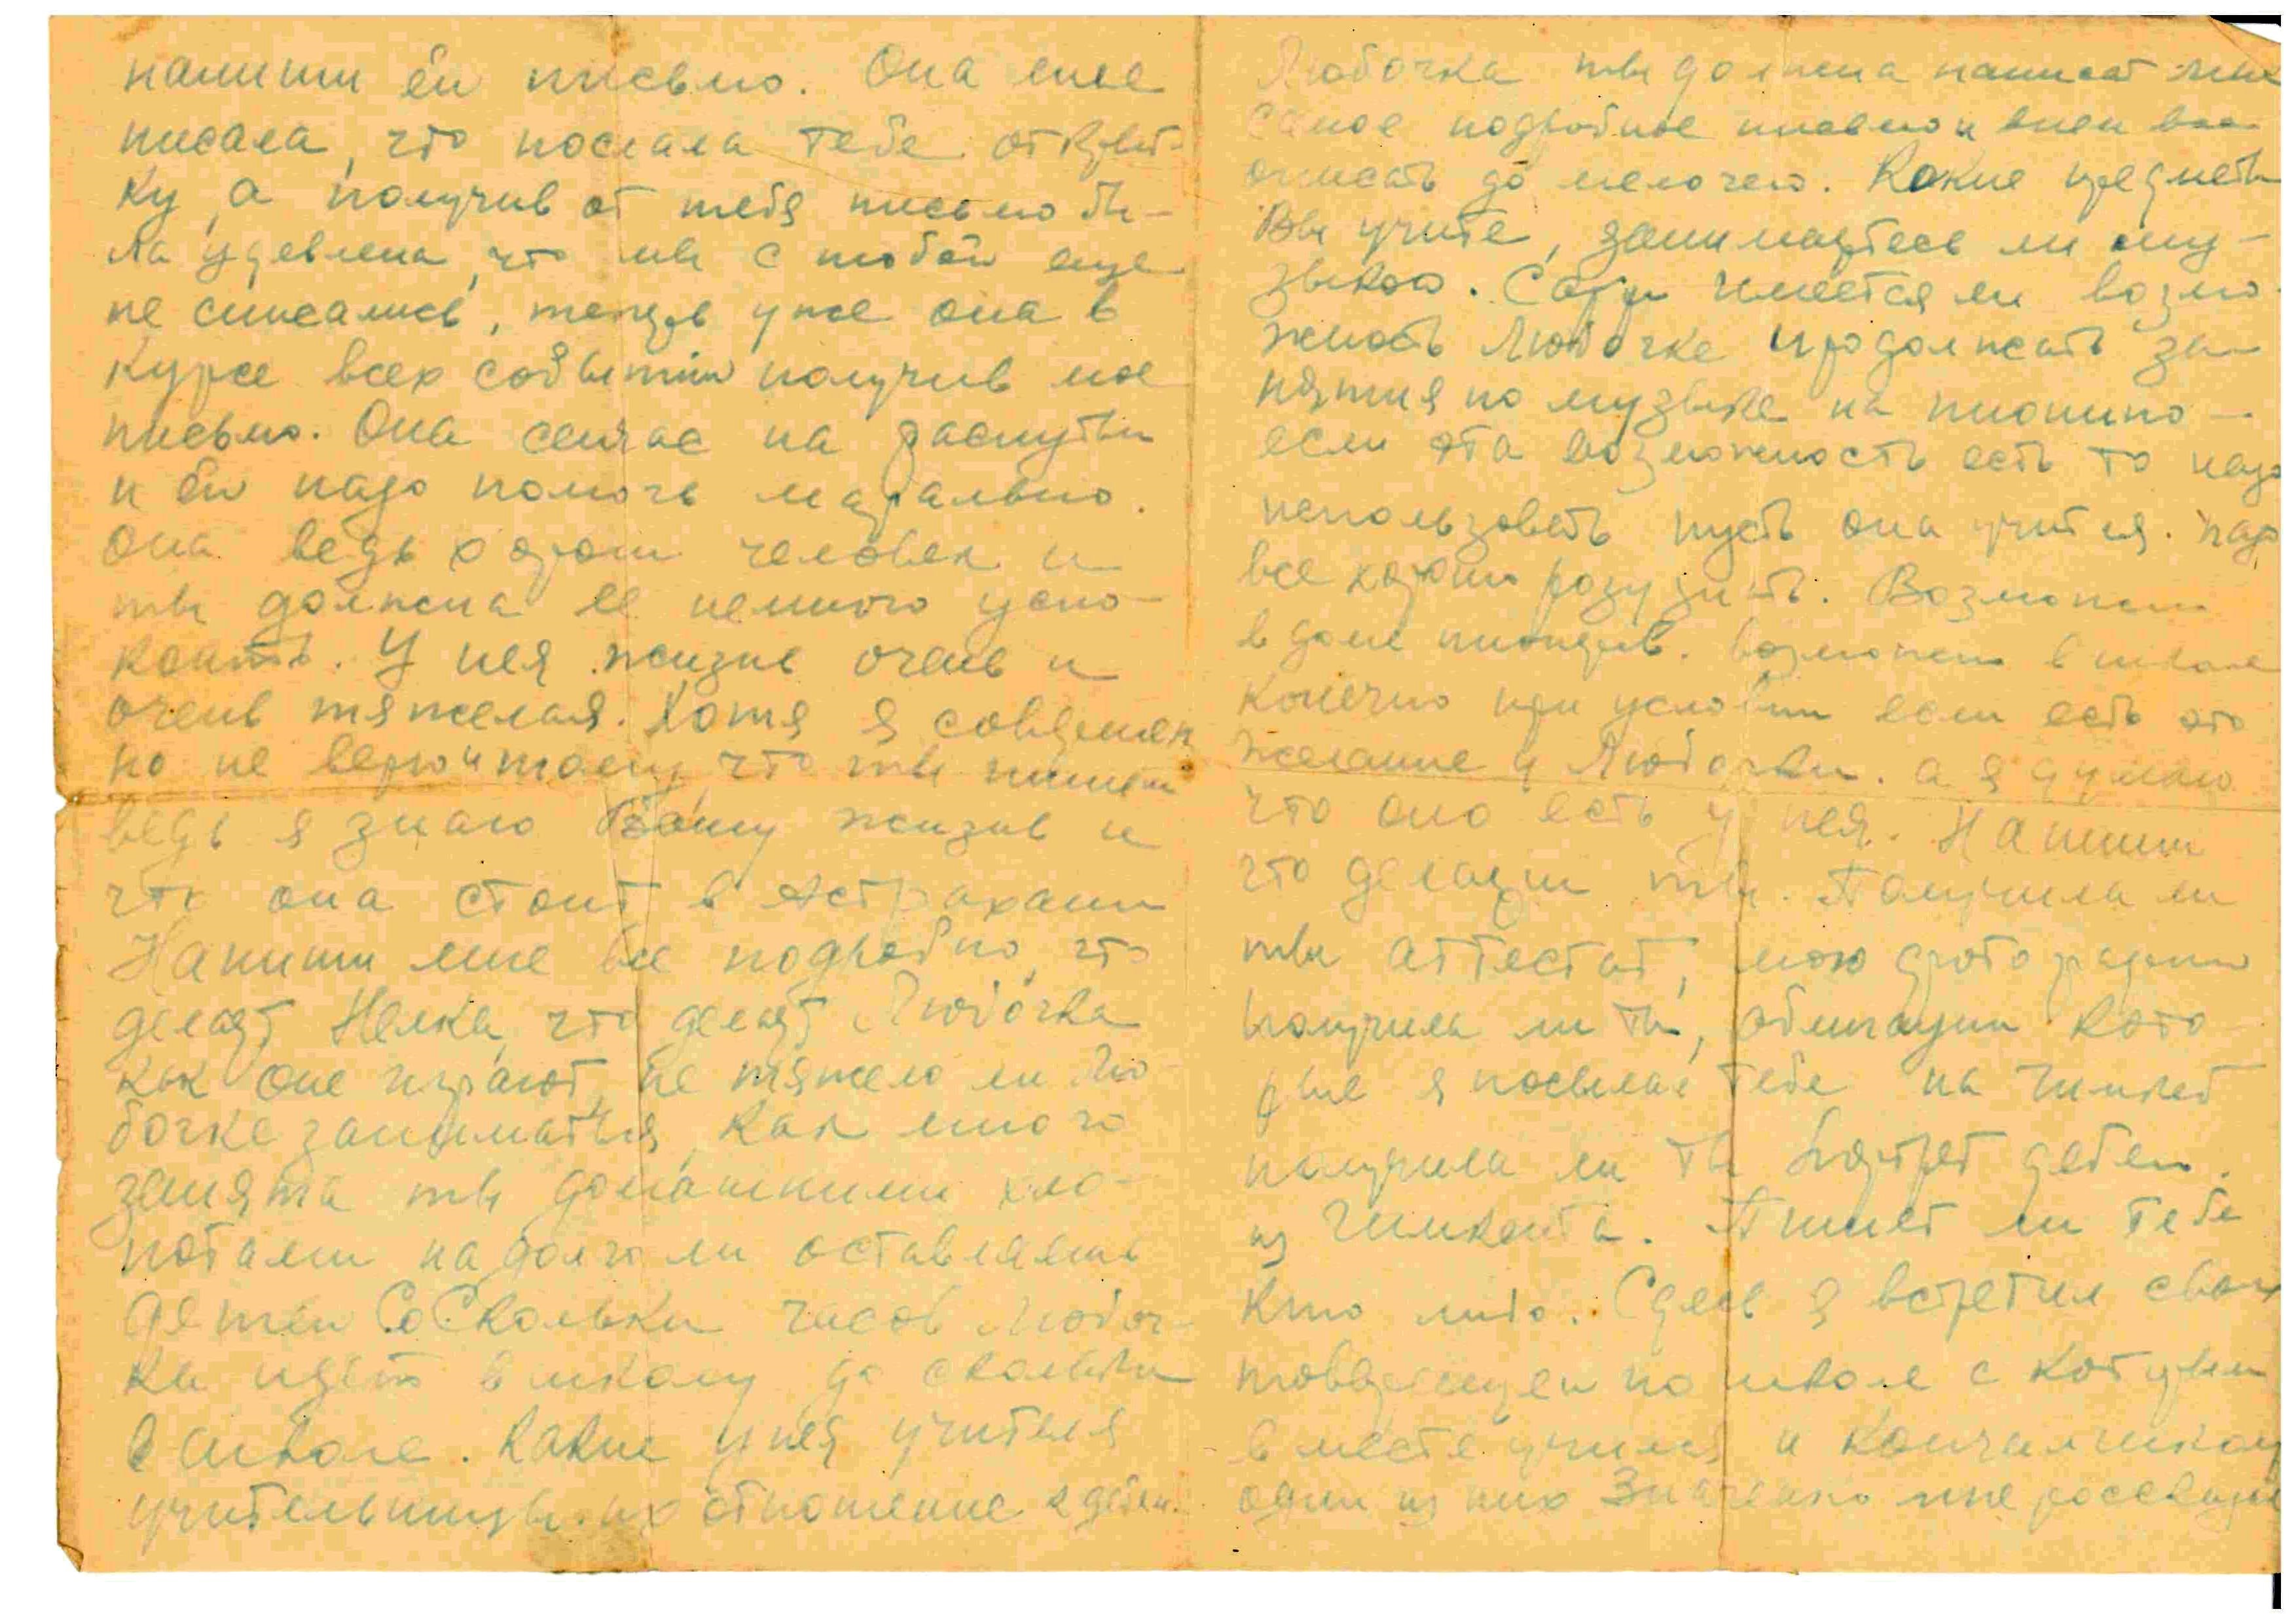 напиши ей письмо. Она мне
писала, что послала тебе открыт-
ку, а получив от тебя письмо бы-
ла удевлена, что мы с тобой еще
не списались, теперь уже она в
курсе всех событий получив мое
письмо. Она сейчас на распутьи
и ей надо помочь морально.
Она ведь хороши человек и
ты должна ее немного успо-
коить. У нея жизнь очень и
очень тяжелая. Хотя я совершен
но не верю и тому, что ты пишеш
ведь я знаю Вашу жизнь и
что она стоит в Астрахани
Напиши мне все подробно, что
делает Нелка, что делает Любочка
как оне играют, не тяжело ли Лю-
бочке заниматься, как много
занята ты домашними хло-
потами на долго ли оставляешь
детей Со Скольки часов Любоч-
ка идет в школу до скольки
в школе. Какие у нея учителя
учительницы. их отношение к детям.
Любочка ты должна написат мне
самое подробное письмо и в нем все
описать до мелочей. Какие предметы
Вы учите, занимаетесь ли му-
зыкой. Сара имеется ли возмо-
жность Любочке продолжать за-
нятия по музыке на пионино —
если эта возможность есть то надо
использовать пусть она учится. надо
все хорошо разузнать. Возможно
в доме пионеров. возможно в школе
Конечно при условии если есть это
желание у Любочки. а я думаю
что оно есть у нея. Напиши
что делаеш ты. Получила ли
ты аттестат, мою фотографию
получила ли ты, облигации кото
рые я посылал тебе на Чимкет
получила ли ты портрет детей.
из Чимкента. Пишет ли тебе
кто либо. Сдесь я встретил своих
товарищей по школе с которым
вместе учился и кончал школу
один из них Значенко мне рассказал